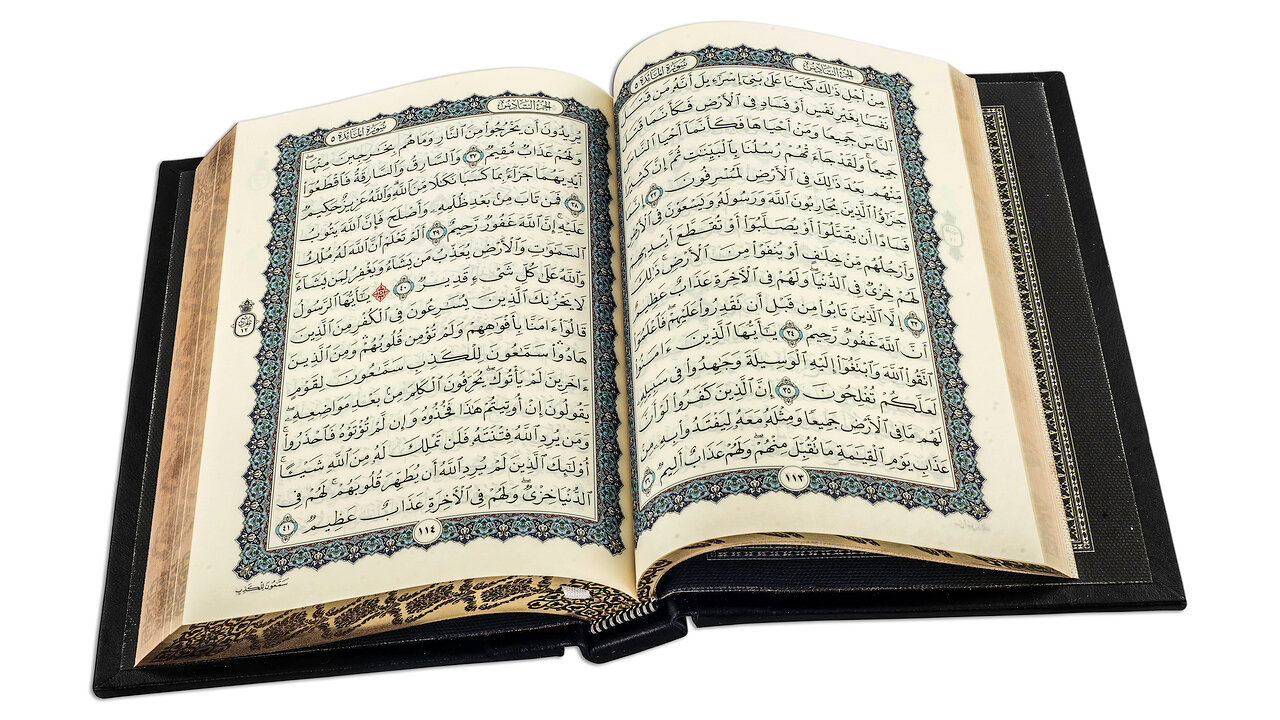 الجزء السادس سورة المائدة ٥
مِنْ أَجْلِ ذَٰلِكَ كَتَبْنَا عَلَىٰ بَنِىٓ إِسْرَٰٓءِيلَ أَنَّهُۥ مَن قَتَلَ
نَفْسًۢا بِغَيْرِ نَفْسٍ أَوْ فَسَادٍ فِى ٱلْأَرْضِ فَكَأَنَّمَا قَتَلَ
ٱلنَّاسَ جَمِيعًا وَمَنْ أَحْيَاهَا فَكَأَنَّمَآ أَحْيَا ٱلنَّاسَ
جَمِيعًا ۚ وَلَقَدْ جَآءَتْهُمْ رُسُلُنَا بِٱلْبَيِّنَٰتِ ثُمَّ إِنَّ كَثِيرًا
مِّنْهُم بَعْدَ ذَٰلِكَ فِى ٱلْأَرْضِ لَمُسْرِفُونَ ٣٢ إِنَّمَا
جَزَٰٓؤُا۟ ٱلَّذِينَ يُحَارِبُونَ ٱللَّهَ وَرَسُولَهُۥ وَيَسْعَوْنَ فِى ٱلْأَرْضِ
فَسَادًا أَن يُقَتَّلُوٓا۟ أَوْ يُصَلَّبُوٓا۟ أَوْ تُقَطَّعَ أَيْدِيهِمْ
وَأَرْجُلُهُم مِّنْ خِلَٰفٍ أَوْ يُنفَوْا۟ مِنَ ٱلْأَرْضِ ۚ ذَٰلِكَ
لَهُمْ خِزْىٌ فِى ٱلدُّنْيَا ۖ وَلَهُمْ فِى ٱلْءَاخِرَةِ عَذَابٌ عَظِيمٌ
٣٣ إِلَّا ٱلَّذِينَ تَابُوا۟ مِن قَبْلِ أَن تَقْدِرُوا۟ عَلَيْهِمْ ۖ فَٱعْلَمُوٓا۟
أَنَّ ٱللَّهَ غَفُورٌ رَّحِيمٌ ٣٤ يَٰٓأَيُّهَا ٱلَّذِينَ ءَامَنُوا۟
ٱتَّقُوا۟ ٱللَّهَ وَٱبْتَغُوٓا۟ إِلَيْهِ ٱلْوَسِيلَةَ وَجَٰهِدُوا۟ فِى سَبِيلِهِۦ
لَعَلَّكُمْ تُفْلِحُونَ ٣٥ إِنَّ ٱلَّذِينَ كَفَرُوا۟ لَوْ أَنَّ
لَهُم مَّا فِى ٱلْأَرْضِ جَمِيعًا وَمِثْلَهُۥ مَعَهُۥ لِيَفْتَدُوا۟ بِهِۦ مِنْ
عَذَابِ يَوْمِ ٱلْقِيَٰمَةِ مَا تُقُبِّلَ مِنْهُمْ ۖ وَلَهُمْ عَذَابٌ أَلِيمٌ ٣٦
١١٣
الجزء السادس سورة المائدة ٥
يُرِيدُونَ أَن يَخْرُجُوا۟ مِنَ ٱلنَّارِ وَمَا هُم بِخَٰرِجِينَ مِنْهَا ۖ
وَلَهُمْ عَذَابٌ مُّقِيمٌ ٣٧ وَٱلسَّارِقُ وَٱلسَّارِقَةُ فَٱقْطَعُوٓا۟
أَيْدِيَهُمَا جَزَآءًۢ بِمَا كَسَبَا نَكَٰلًا مِّنَ ٱللَّهِ ۗ وَٱللَّهُ عَزِيزٌ حَكِيمٌ
٣٨ فَمَن تَابَ مِنۢ بَعْدِ ظُلْمِهِۦ وَأَصْلَحَ فَإِنَّ ٱللَّهَ يَتُوبُ
عَلَيْهِ ۗ إِنَّ ٱللَّهَ غَفُورٌ رَّحِيمٌ ٣٩ أَلَمْ تَعْلَمْ أَنَّ ٱللَّهَ لَهُۥ مُلْكُ
ٱلسَّمَٰوَٰتِ وَٱلْأَرْضِ يُعَذِّبُ مَن يَشَآءُ وَيَغْفِرُ لِمَن يَشَآءُ ۗ
وَٱللَّهُ عَلَىٰ كُلِّ شَىْءٍ قَدِيرٌ ٤٠ يَٰٓأَيُّهَا ٱلرَّسُولُ
لَا يَحْزُنكَ ٱلَّذِينَ يُسَٰرِعُونَ فِى ٱلْكُفْرِ مِنَ ٱلَّذِينَ
قَالُوٓا۟ ءَامَنَّا بِأَفْوَٰهِهِمْ وَلَمْ تُؤْمِن قُلُوبُهُمْ ۛ وَمِنَ ٱلَّذِينَ
هَادُوا۟ ۛ سَمَّٰعُونَ لِلْكَذِبِ سَمَّٰعُونَ لِقَوْمٍ
ءَاخَرِينَ لَمْ يَأْتُوكَ ۖ يُحَرِّفُونَ ٱلْكَلِمَ مِنۢ بَعْدِ مَوَاضِعِهِۦ ۖ
يَقُولُونَ إِنْ أُوتِيتُمْ هَٰذَا فَخُذُوهُ وَإِن لَّمْ تُؤْتَوْهُ فَٱحْذَرُوا۟ ۚ
وَمَن يُرِدِ ٱللَّهُ فِتْنَتَهُۥ فَلَن تَمْلِكَ لَهُۥ مِنَ ٱللَّهِ شَيْـًٔا ۚ
أُو۟لَٰٓئِكَ ٱلَّذِينَ لَمْ يُرِدِ ٱللَّهُ أَن يُطَهِّرَ قُلُوبَهُمْ ۚ لَهُمْ فِى
ٱلدُّنْيَا خِزْىٌ ۖ وَلَهُمْ فِى ٱلْءَاخِرَةِ عَذَابٌ عَظِيمٌ ٤١
١١٤
سَمَّٰعُونَ لِلْكَذِبِ